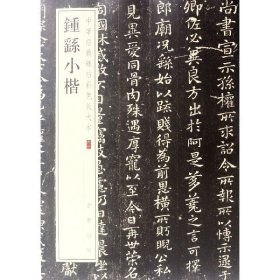 中華經典碑帖彩色放大本
鍾繇小楷
中華書局
尚書宣示孫權所求詔令所報所以博示逮
于卿佐必冀良方出於阿是芻蕘之言可擇
郎廟況繇始以疏賤得為前恩橫所眄睨公私
見異愛同骨肉殊遇厚寵以至今日再世榮名
獻